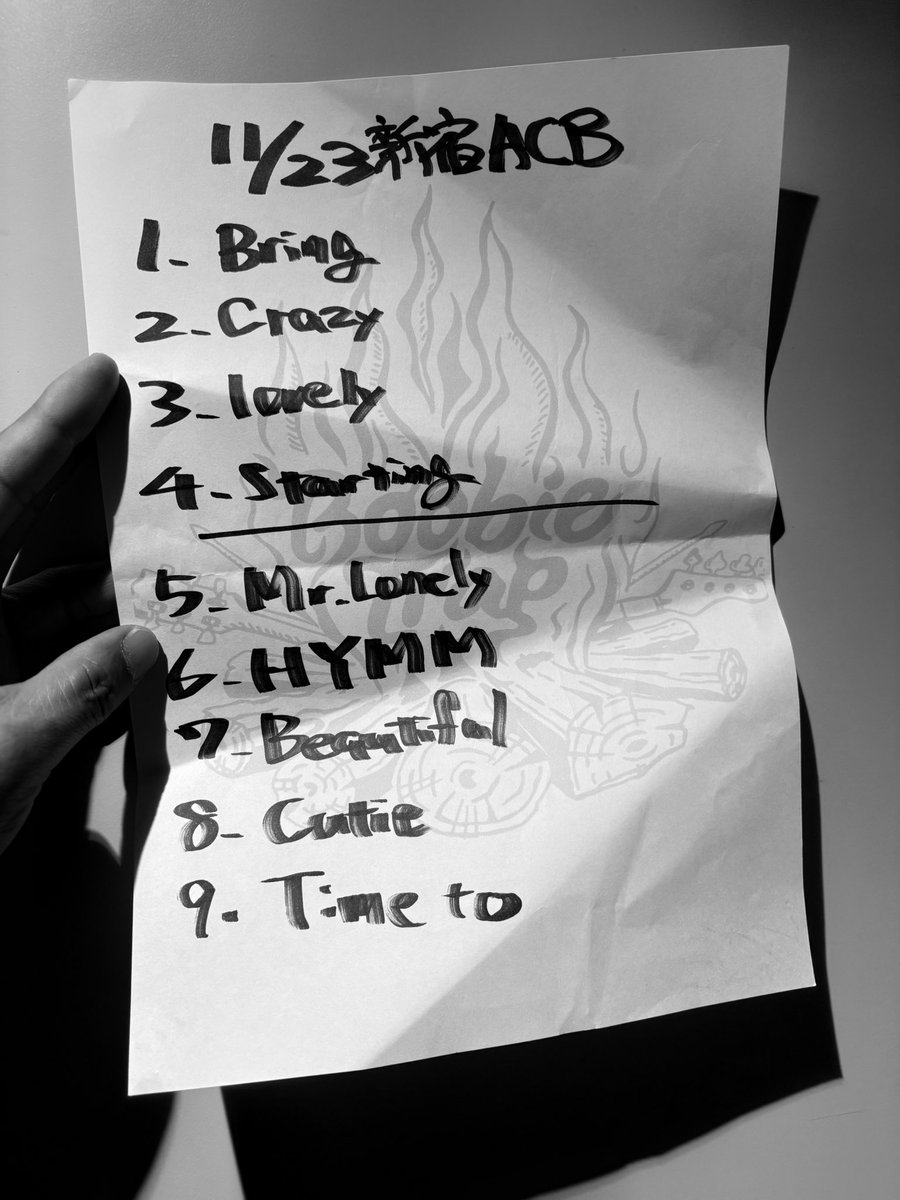 11/23新宿ACB
1- Bring
2- Crazy
3- lovely
4- Starting
Boobie
Trap
5- Mr. Lonely
6- HYMM
7- Beautiful
8- Cutie
9- Time to